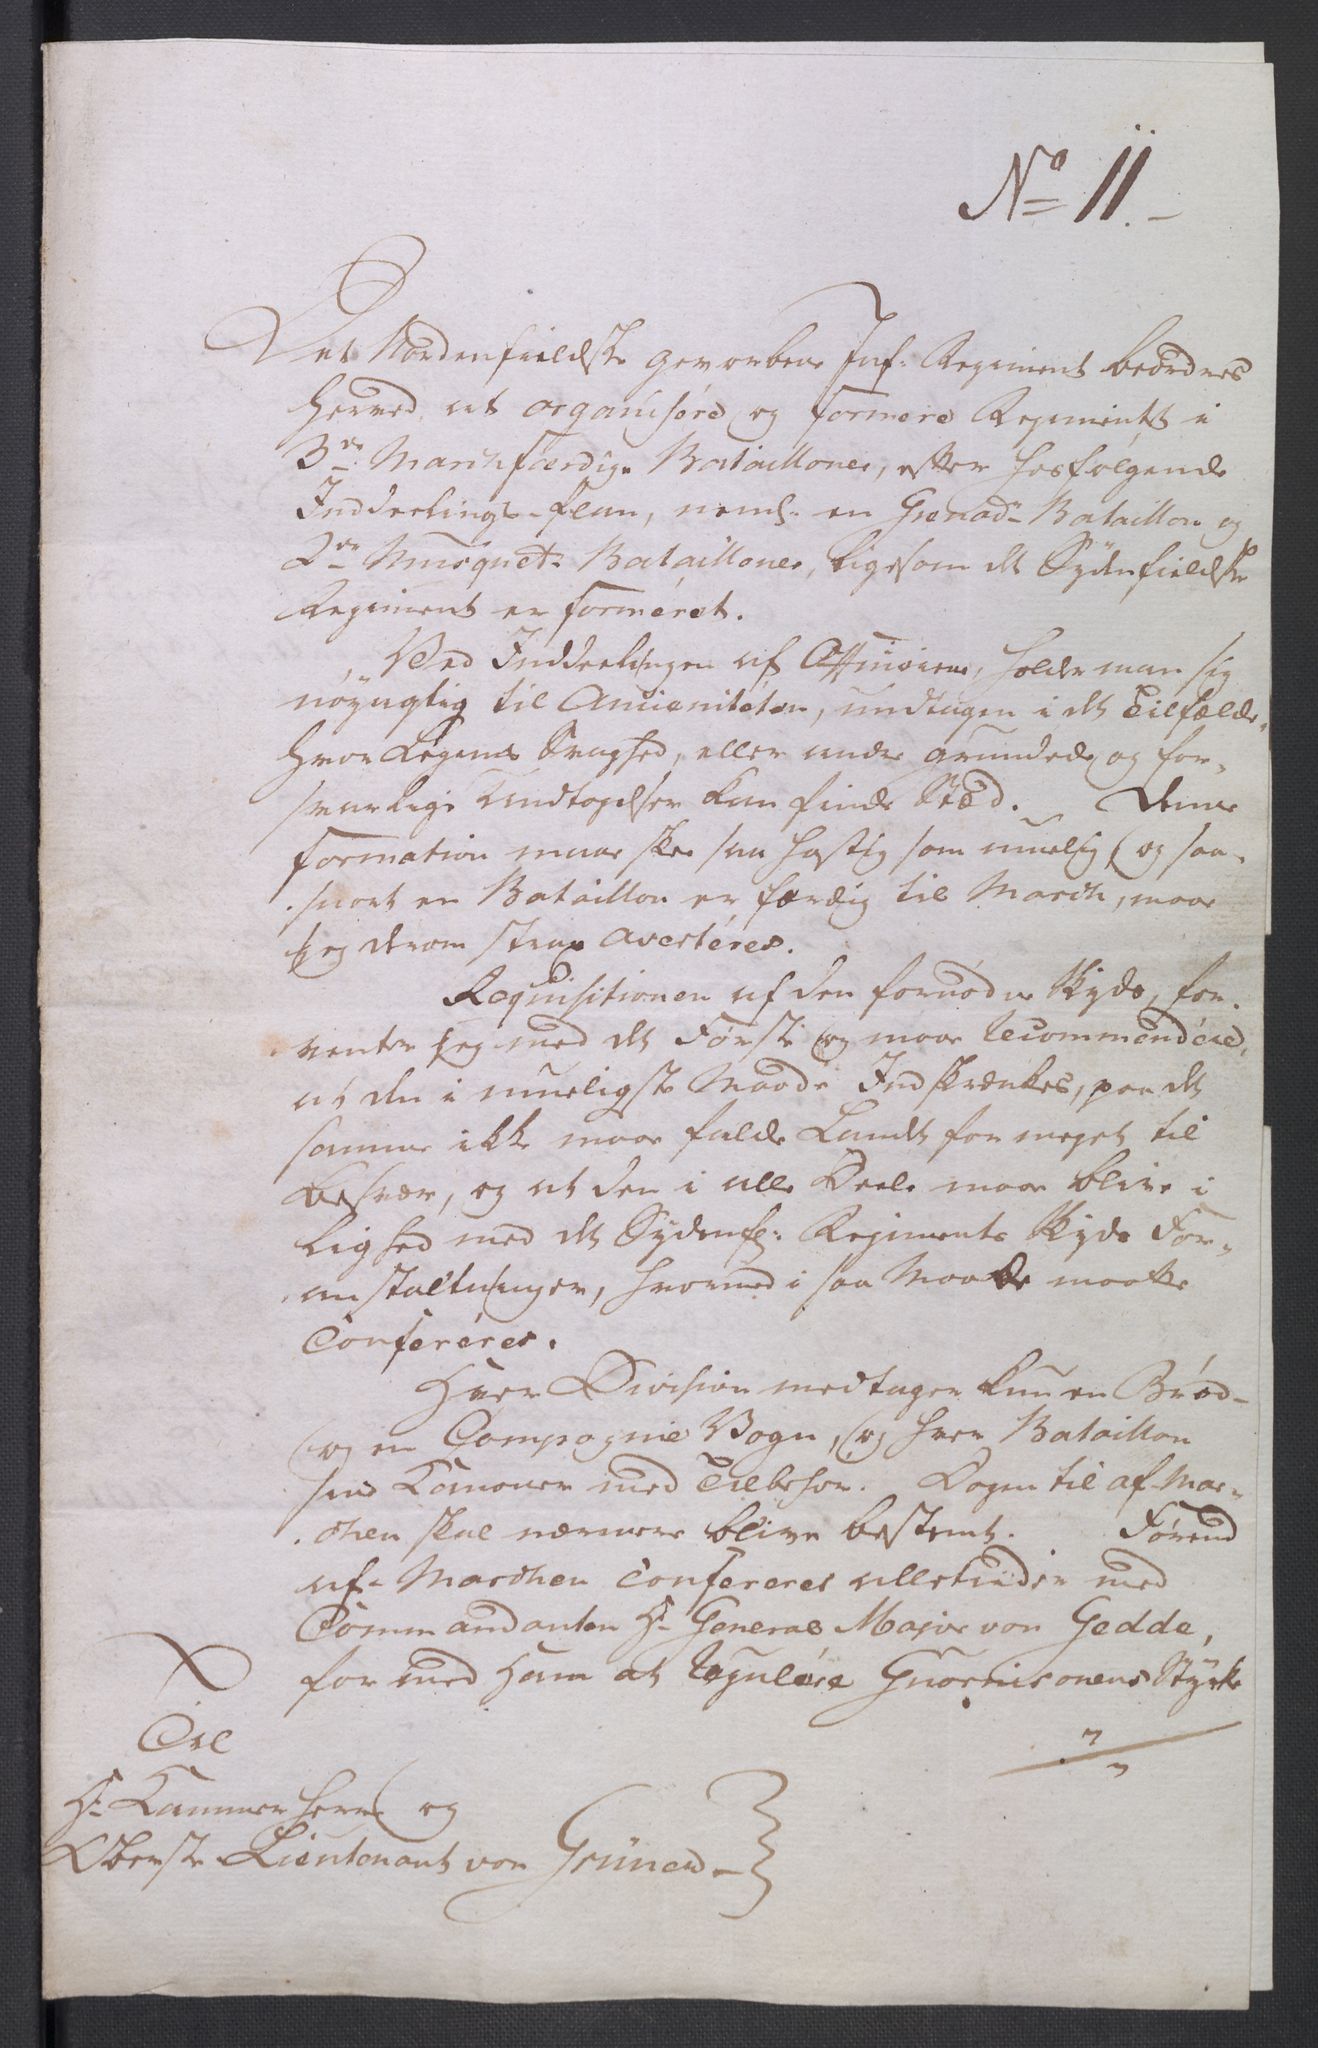 No 11.
Det Nordenfieldske gevorbene Inf: Regiment beordres
herved at organisere og formere Regimentet i
3de Marchfærdige Batailloner, efter hosfølgende
Inddeelings-plan, neml: en Grenad- Bataillon og
2de Musquet- Batailloner, ligesom det Sydenfieldske
Regiment er formeret.
Ved Inddeelingen af Officiererne, holder man sig
nöyagtig til Ancienitéten, undtagen i det Tilfælde,
hvor Legems Svaghed, eller andre grundede og for-
svarlige Undtagelser kan finde Stæd. Denne
formation maae skee saa hastig som muelig, og saa-
snart en Bataillon er færdig til March, maae
jeg derom strax averteres.
Requisitionen af den fornødne Skyds, for-
venter jeg med det Første og maae recommendere,
at den i mueligste Maade Indskrænkes, paa det
samme ikke maae falde Landet for meget til
besvær, og at den i alle Deele maae blive i
Lighed med det Sydenf: Regiments Skyds For-
anstaltninger, hvormed i saa Maade maatte
Confereres.
Hver Division medtager kun en Brød-
og en Compagnie Vogn, og hver Bataillon
sine Kanoner med Tilbehør. Dagen til af-Mar-
chen skal nærmere blive bestemt. Førend
af-Marchen Confereres alletiider med
Commandanten Hr General Major von Gedde,
for med ham at regulere Guarnisonens Styrke
Til
Hr Kammerherre og
Oberste Lieutenant von Grüner